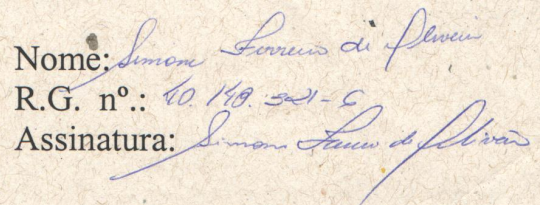 Nome: Simone Ferreira de Oliveira
R.G. nº.: 40.148.321-6
Assinatura: Simone Ferreira de Oliveira